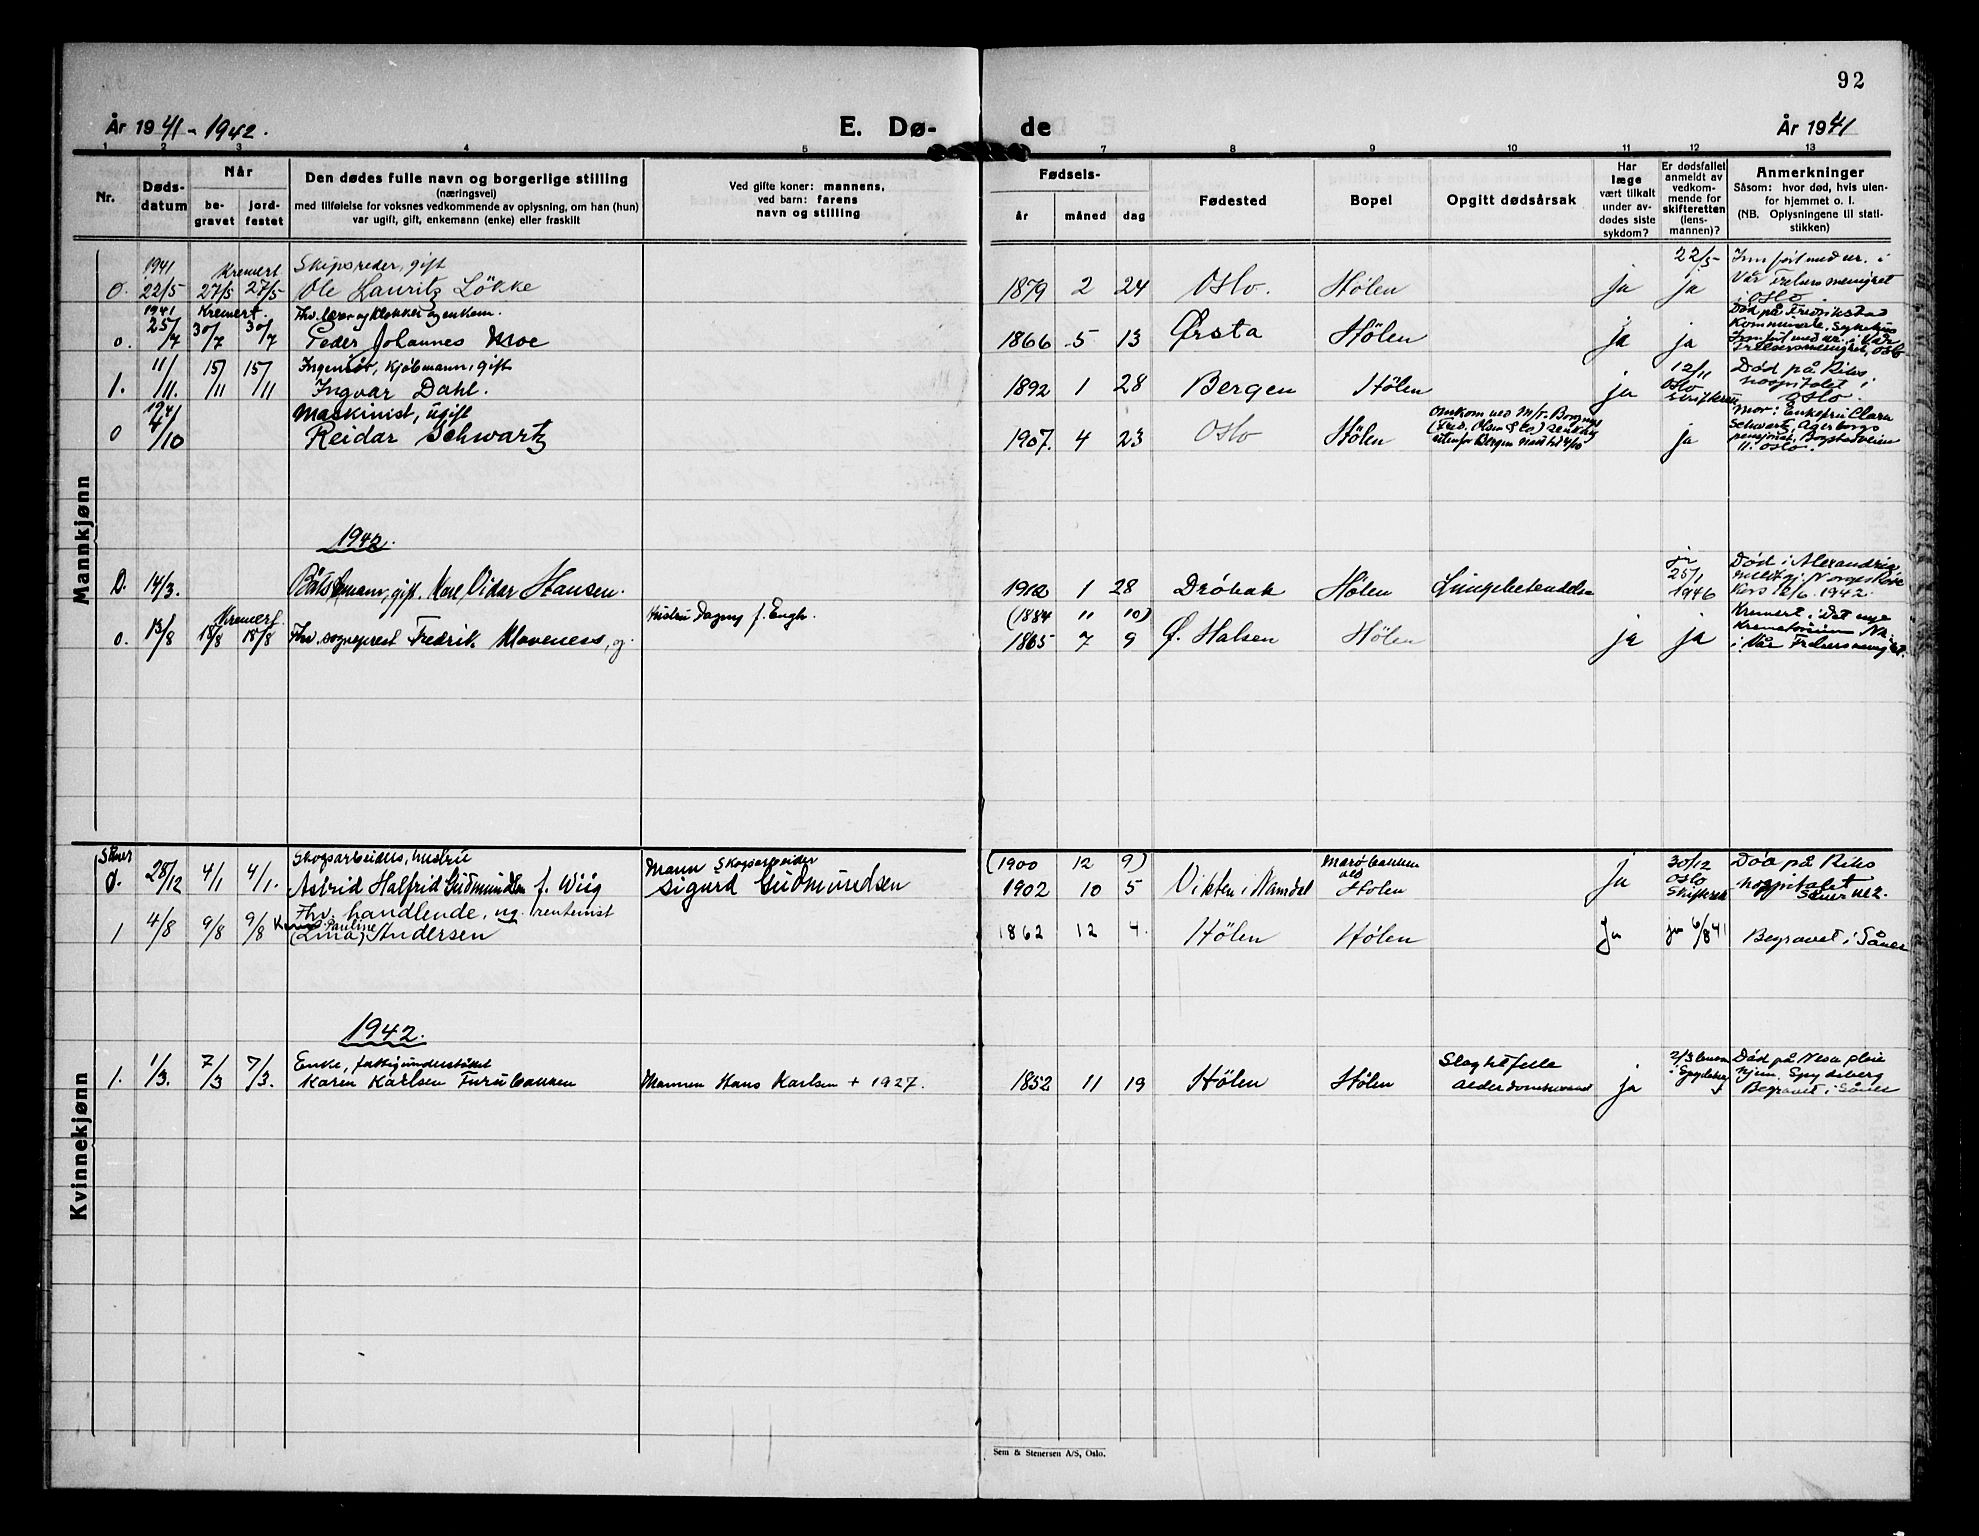 92
År 1941 - 1942.
E. Dø-
de
År 1941
1 2 3 4 5 7 8 9 10 11 12 13
Nr.
Døds-
datum
Når
be-
gravet
jord-
festet
Den dødes fulle navn og borgerlige stilling
(næringsvei)
med tilføielse for voksnes vedkommende av oplysning, om han (hun)
var ugift, gift, enkemann (enke) eller fraskilt
Ved gifte koner: mannens,
ved barn: farens
navn og stilling
Fødsels-
år måned dag
Fødested
Bopel
Opgitt dødsårsak
Har
læge
vært tilkalt
under av-
dødes siste
sykdom?
Er dødsfallet
anmeldt av
vedkom-
mende for
skifteretten
(lens-
mannen)?
Anmerkninger
Såsom: hvor død, hvis uten-
for hjemmet o. l.
(NB. Oplysningene til stati-
stikken)
Mannkjønn
1941 Kremert Skipsreder, gift 22/5 Innført med nr. i
0. 22/5 27/5 27/5 Ole Hauritz Løkke 1879 2 24 Oslo. Hølen ja ja Vår Frelsers menighet
i Oslo.
1941 Kremert. Fhv. lærer og klokker og enkem. Død på Fredrikstad
0. 25/7 30/7 30/7 Peder Johannes Moe 1866 5 13 Ørsta Hølen ja ja Kommunale Sykehus
Innført med nr. i Vår
Frelsersmenighet, Oslo
Ingeniør, kjøbmann, gift 12/11 Død på Riks
1. 11/11. 15/11 15/11 Ingvar Dahl. 1892 1 28 Bergen Hølen ja Oslo hospitalet i
Oslo.
1941 Maskinist, ugift Omkom ved M/T. Mor: Enkefru Clara
0 4/10 Reidar Schwartz 1907. 4 23 Oslo Hølen (Fred. Olsen & Co) ja Schwartz, Agerborgs
utenfor Bergen pensjonat, Bogstadveien
11. Oslo.
1942.
ja Død i Alexandria
0. 14/3. Båtsmann, gift. Karl Vidar Hansen. 1912 1 28 Drøbak Hølen Lungebetendelse 25/1 1946 meldt gj. Norges Røde
Kors 12/6. 1942.
Kremert Hustru Dagny f. Engh. (1884 11 10) Kremert i Det nye
0. 13/8 18/8 18/8 Fhv. sogneprest Fredrik Klaveness, g. 1865 7 9 Ø. Halsen Hølen ja ja Krematorium Nr.
i Vår Frelsers menighet.
Kvinnekjønn
Såner Skogsarbeiders, hustru Mann Skogsarbeider (1900 12 9) 30/12 Død på Riks
0. 28/12 4/1 4/1. Astrid Halfrid Gudmundsen f. Wiig Sigurd Gudmundsen 1902 10 5 Vikten i Namdal ved Hølen Ja Oslo hospitalet
Skifterett Såner nr 2.
Fhv. handlende, ug. rentenist
1 4/8 9/8 9/8 Karen Pauline
(Lina) Andersen 1862 12 4. Hølen Hølen Ja ja 6/8 41 Begravet i Såner
1942.
Enke, fattigunderstøttet Slagtilfelle 2/3 Død på Nesu pleie
1. 1/3. 7/3 7/3. Karen Karlsen Furubakken Mannen Hans Karlsen + 1927. 1852 11 19 Hølen Hølen Alderdomssvakhet ja i Spydeberg hjem. Spydeberg
Begravet i Såner
Sem & Stenersen A/S, Oslo.